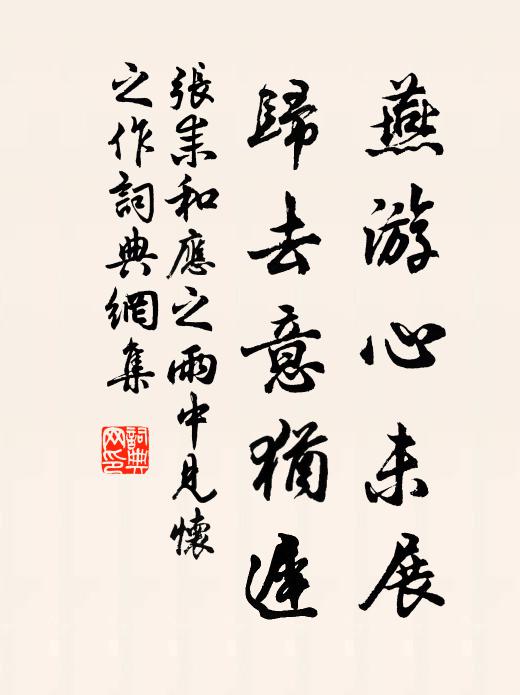 燕游心未展
歸去意猶遲
張耒和應之雨中見懷
之作詞典網集
詞典
网印